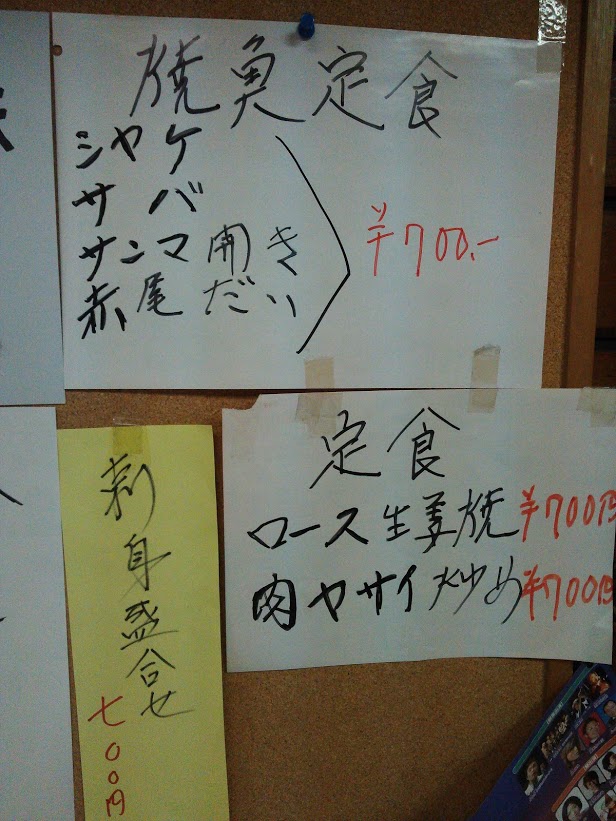 焼魚定食
シャケ
サバ
サンマ開き
赤尾だい
¥700.-
定食
ロース生姜焼¥700円
肉ヤサイ炒め¥700円
刺身盛合せ
七００円